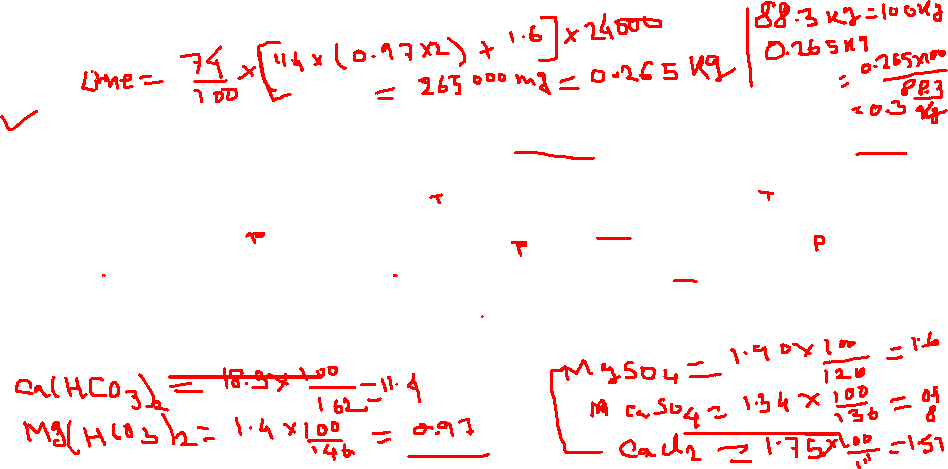 Lime = 74/100 × [11.4 × (0.97×2) + 1.6] × 24000
= 265000 mg = 0.265 Kg
88.3 Kg = 100 Kg
0.265 Kg
= 0.265×100/88.3
= 0.3 Kg
T T
T T P
Ca(HCO3)2 = 18.9 × 100/162 = 11.4
Mg(HCO3)2 = 1.4 × 100/146 = 0.97
MgSO4 = 1.90 × 100/120 = 1.6
CaSO4 = 1.34 × 100/136 =
CaCl2 = 1.75 × 100/111 = 1.57